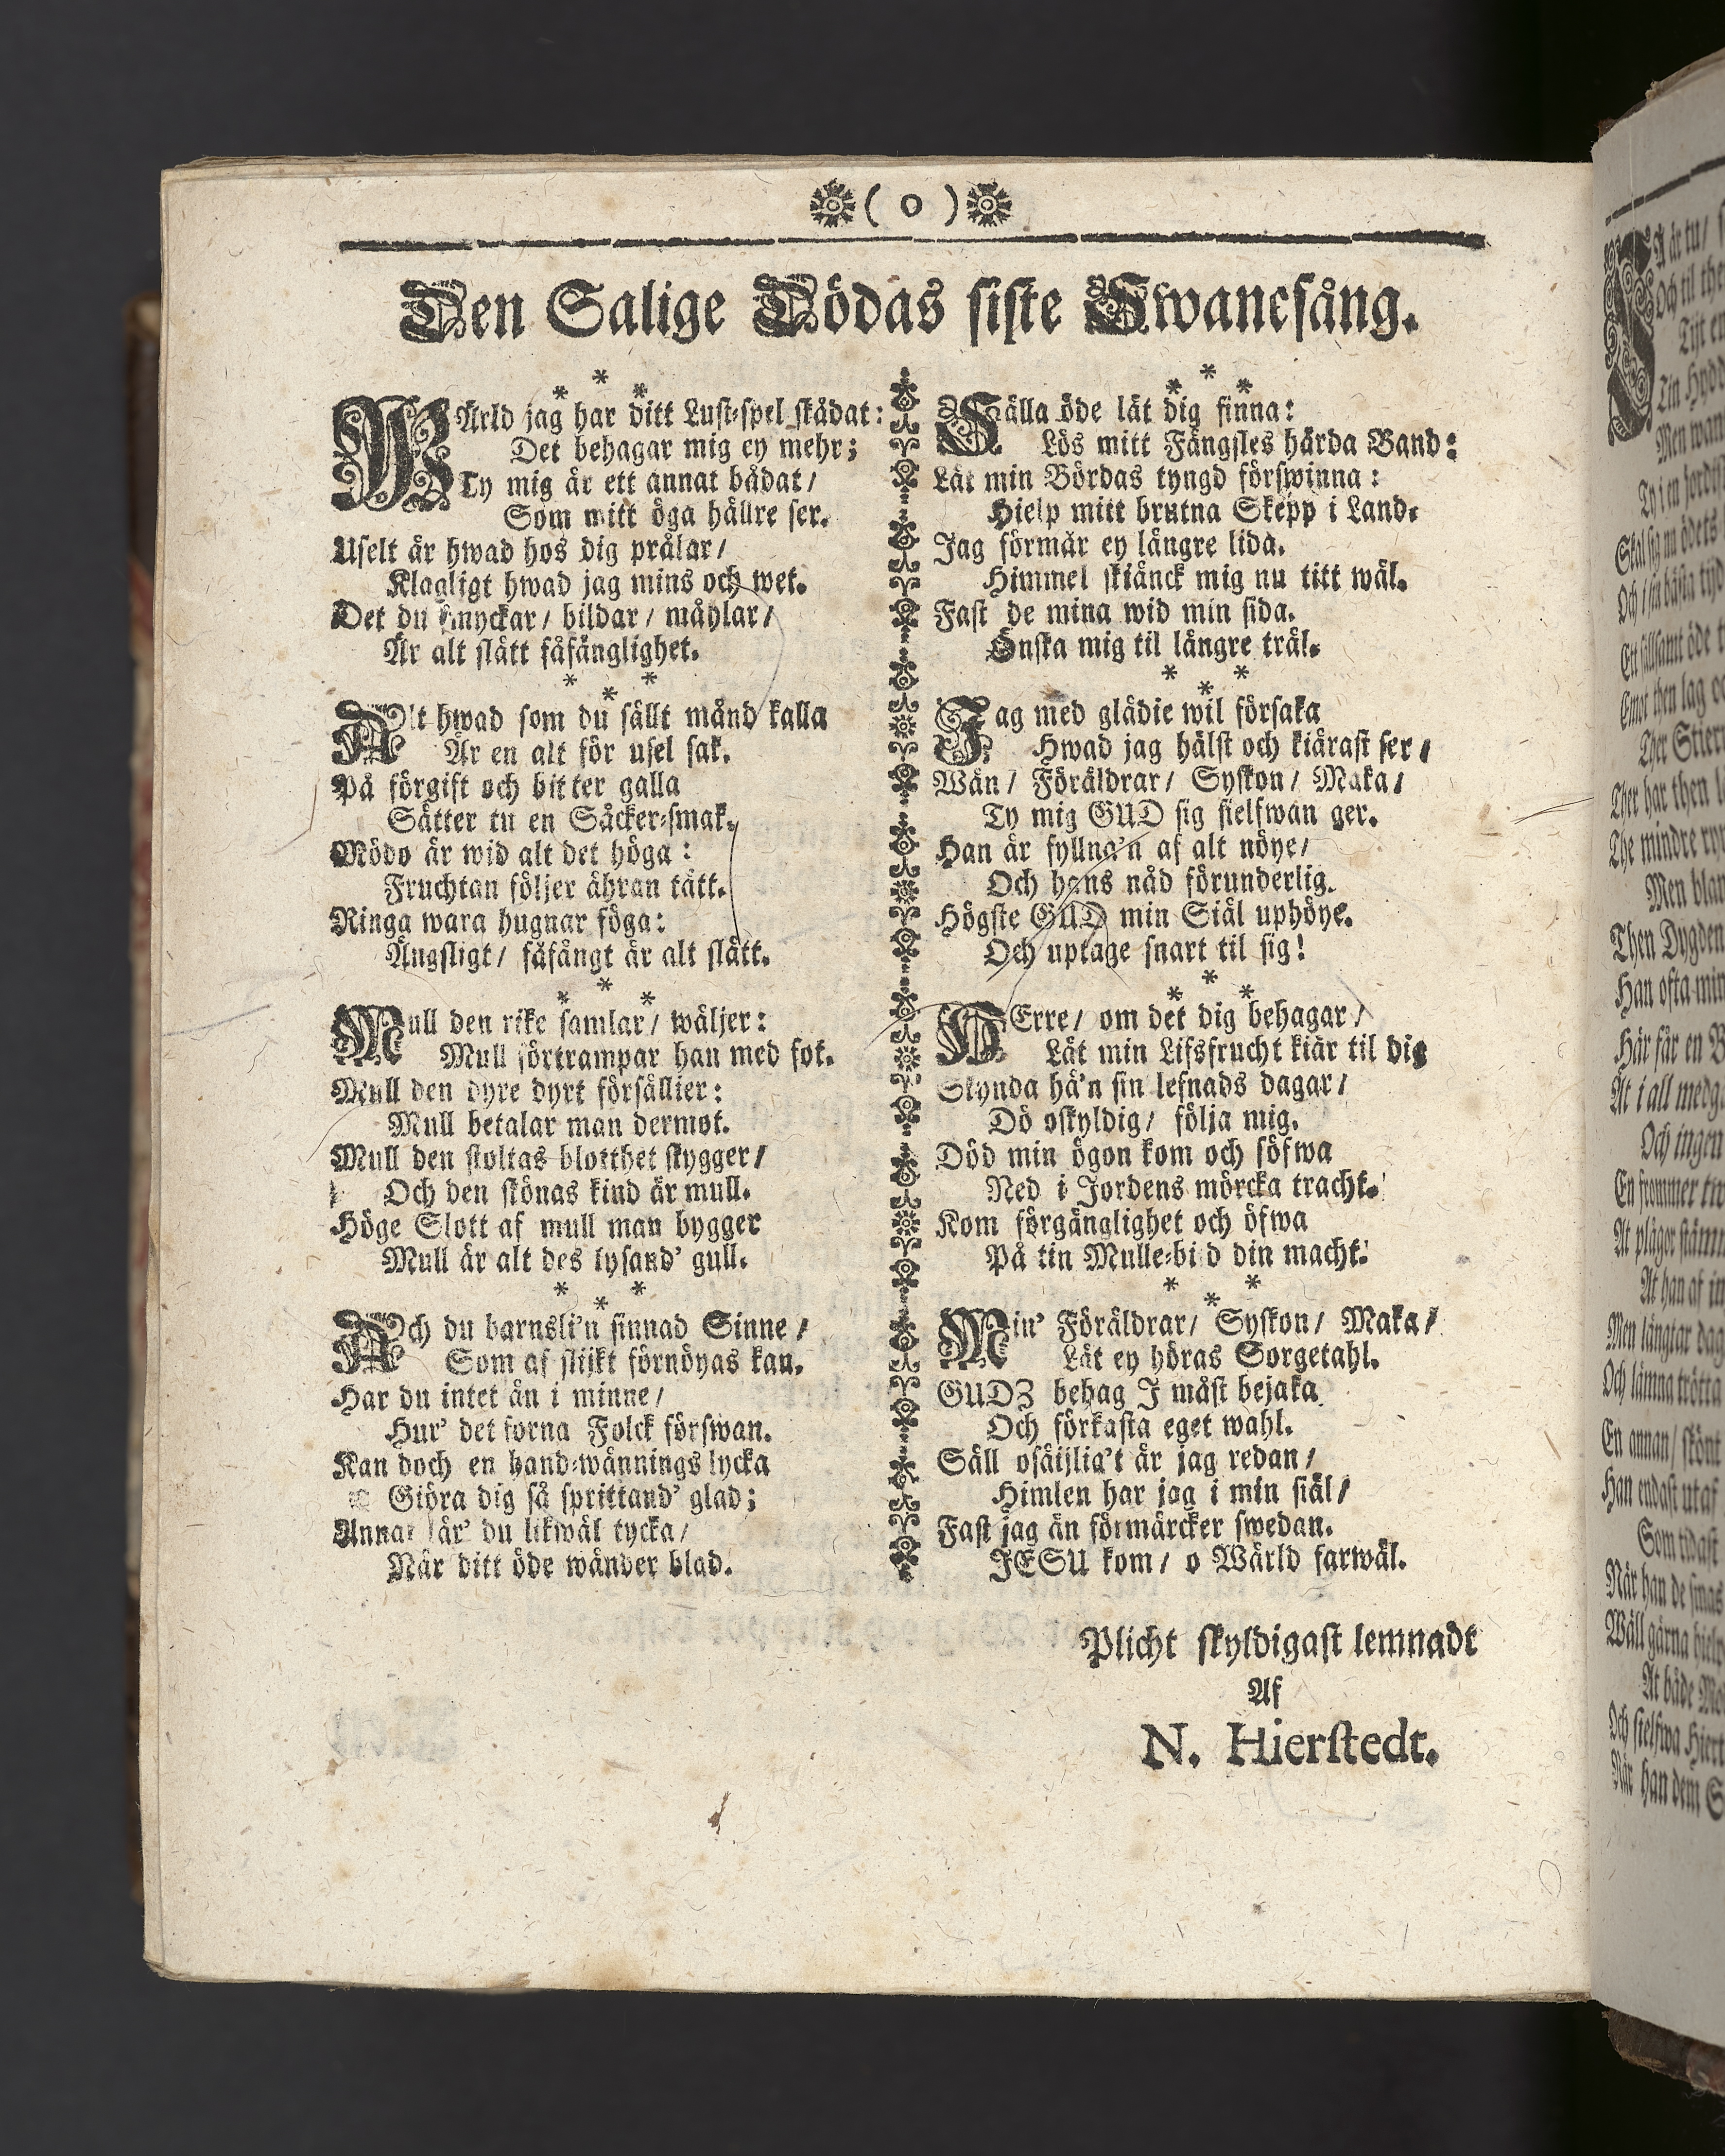 ( 0 )
Den Salige Dödas siste Swanesång.
WÄrld jag har ditt Lust-spel skådat:
Det behagar mig ey mehr;
Ty mig är ett annat bådat/
Som mitt öga hällre ser.
Uselt är hwad hos dig prålar/
Klagligt hwad jag mins och wet.
Det du smyckar/ bildar/ måhlar/
Är alt slätt fåfänglighet.
Alt hwad som du sällt månd kalla
Är en alt för usel sak.
På förgift och bitter galla
Sätter tu en Såcker-smak.
Mödo är wid alt det höga:
Fruchtan följer ähran tätt.
Ringa wara hugnar föga:
Ängsligt/ fåfängt är alt slätt.
Mull den rike samlar/ wäljer:
Mull förtrampar han med fot.
Mull den dyre dyrt försällier:
Mull betalar man dermot.
Mull den stoltas blotthet skygger/
Och den skönas kind är mull.
Höge Slott af mull man bygger
Mull är alt des lysand' gull.
Ach du barnsli'n sinnad Sinne/
Som af slijkt förnöyas kan.
Har du intet än i minne/
Hur' det forna Folck förswan.
Kan doch en hand-wännings lycka
Giöra dig så sprittand' glad;
Annat lär' du likwäl tycka/
När ditt öde wänder blad.
Sälla öde låt dig finna:
Lös mitt Fängsles hårda Band:
Låt min Bördas tyngd förswinna:
Hielp mitt brutna Skepp i Land.
Jag förmår ey längre lida.
Himmel skiänck mig nu titt wäl.
Fast de mina wid min sida.
Önska mig til längre träl.
Jag med glädie wil försaka
Hwad jag hälst och kiärast ser/
Wän/ Föräldrar/ Syskon/ Maka/
Ty mig GUD sig sielfwan ger.
Han är fyllna'n af alt nöye/
Och hans nåd förunderlig.
Högste GUD min Siäl uphöye.
Och uptage snart til sig!
HErre/ om det dig behagar/
Låt min Lifsfrucht kiär til dig
Skynda hä'n sin lefnads dagar/
Dö oskyldig/ följa mig.
Död min ögon kom och söfwa
Ned i Jordens mörcka tracht.
Kom förgänglighet och öfwa
På tin Mulle-bild din macht.
Min' Föräldrar/ Syskon/ Maka/
Låt ey höras Sorgetahl.
GUDZ behag I måst bejaka
Och förkasta eget wahl.
Säll osäijlia't är jag redan/
Himlen har jag i min siäl/
Fast jag än förmärcker swedan.
JESU kom/ o Wärld farwäl.
Plicht skyldigast lemnadt
Af
N. Hierstedt.